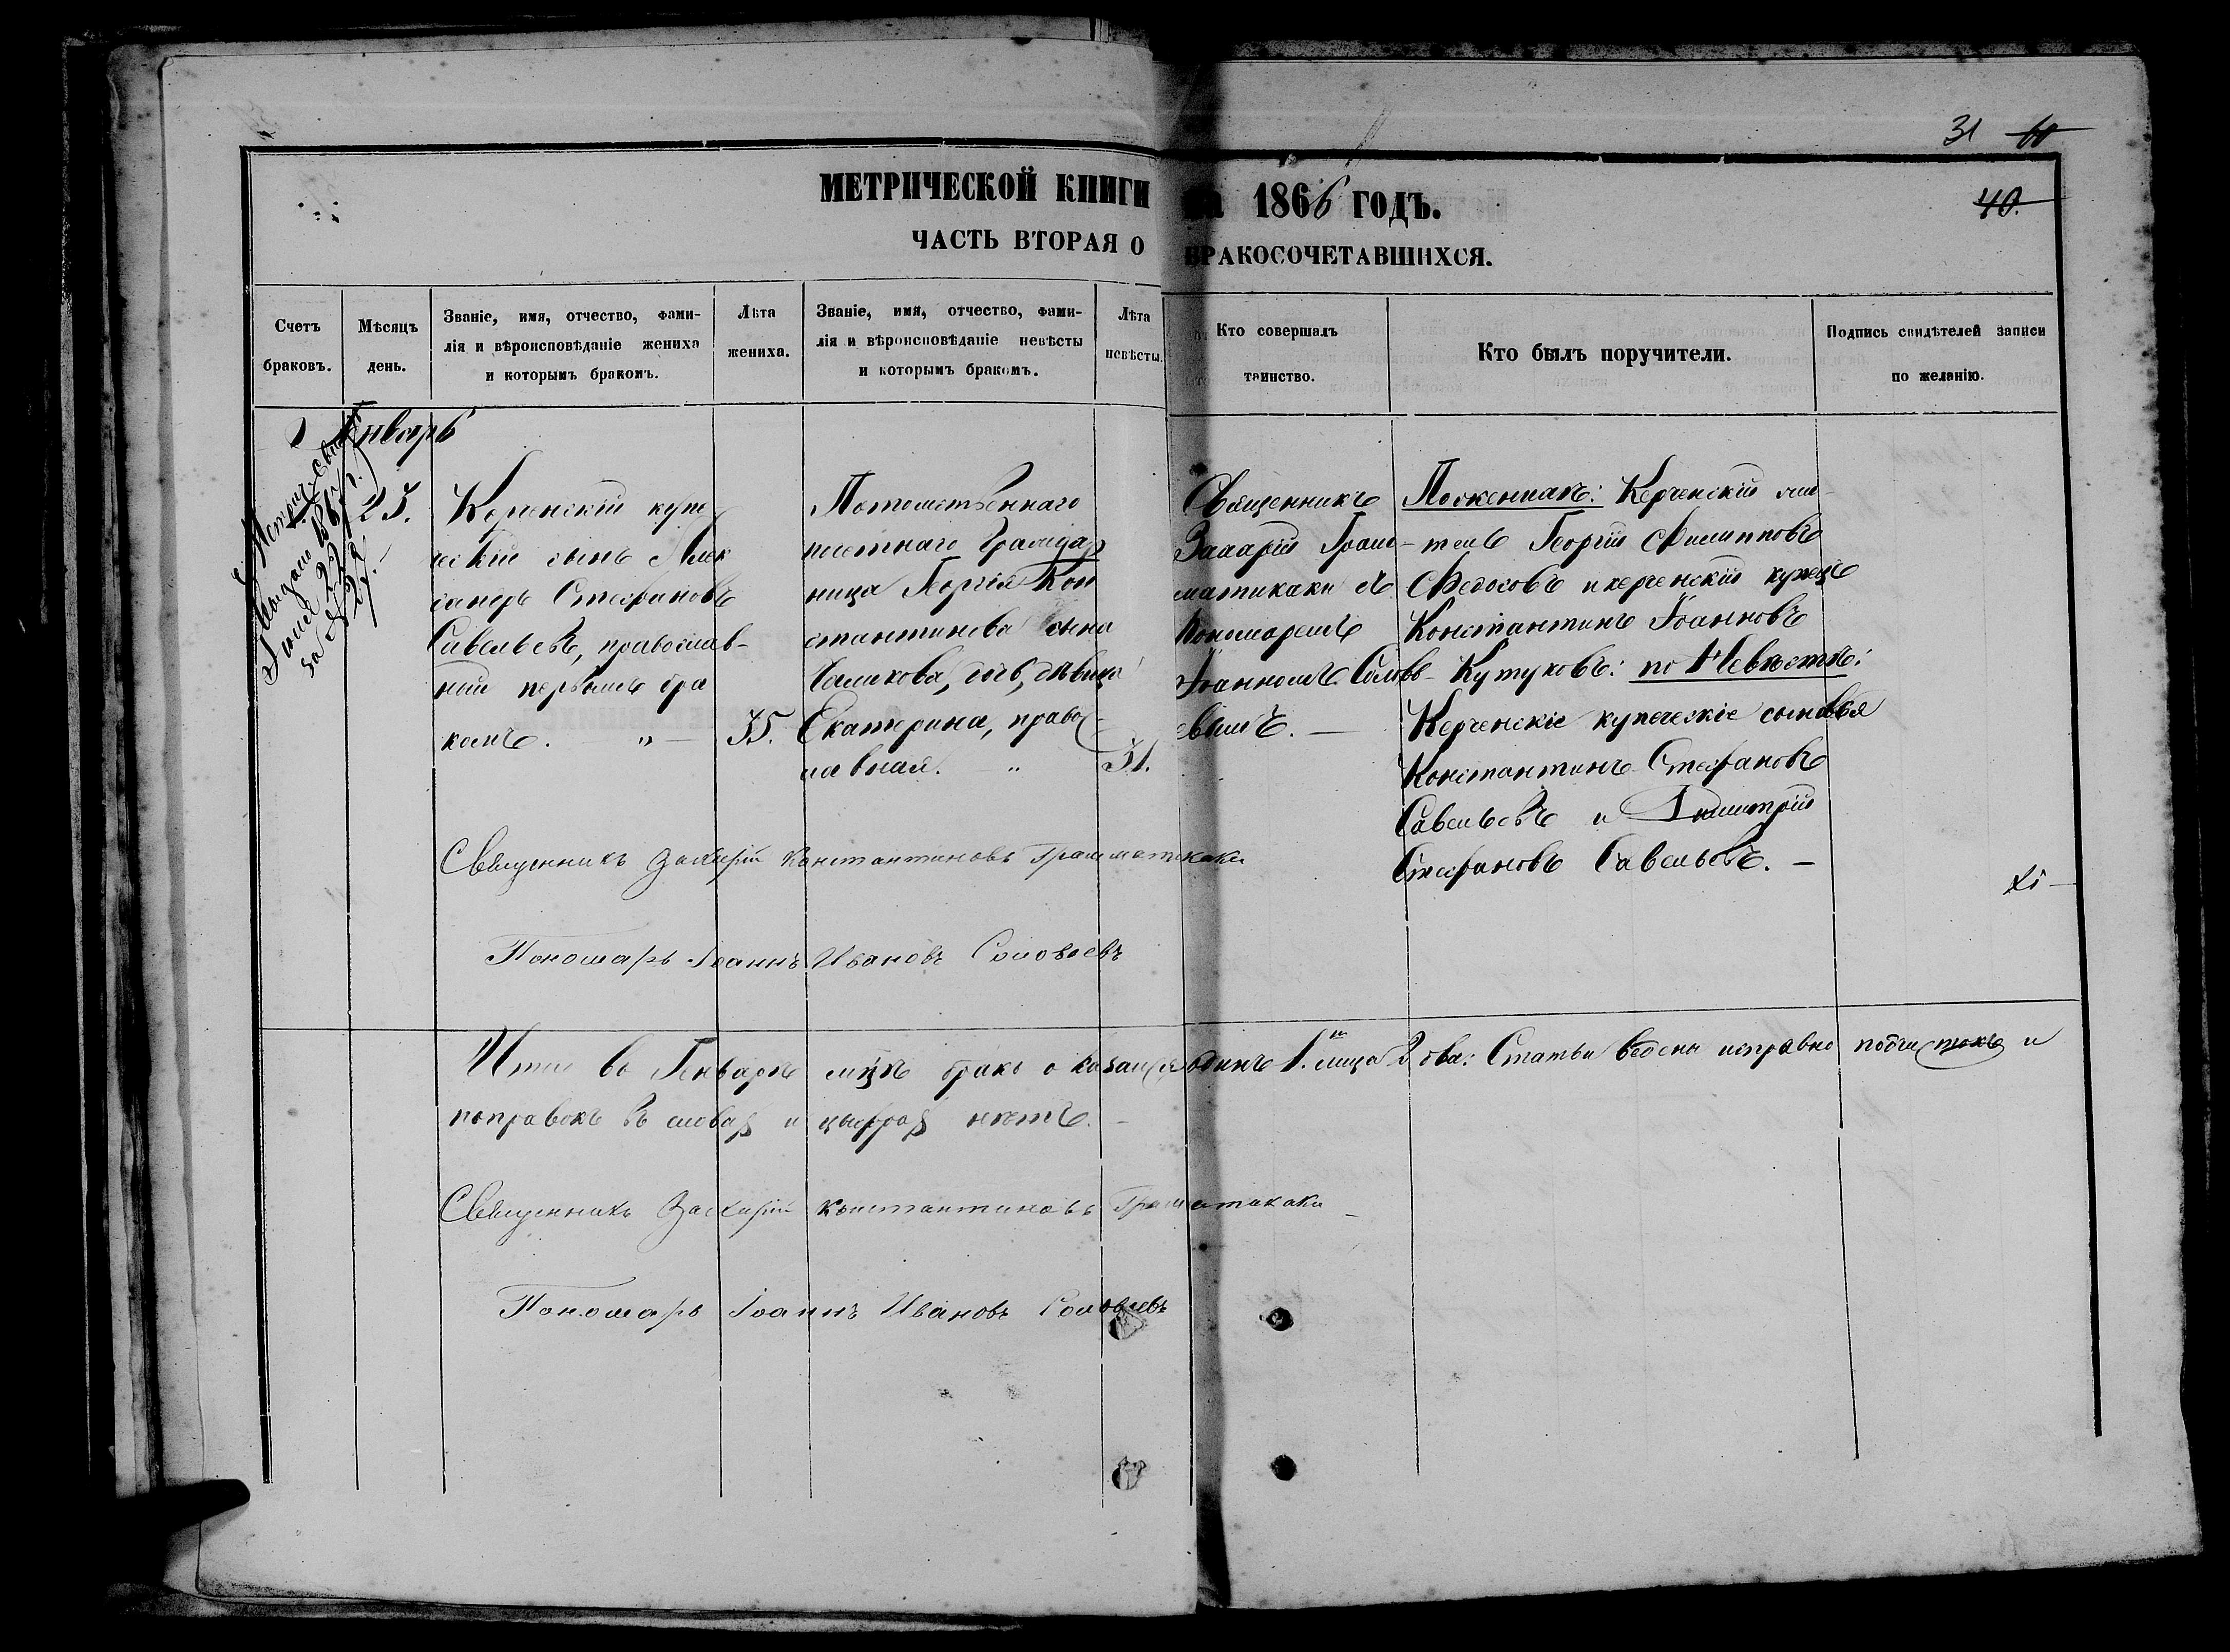 31 60
МЕТРИЧЕСКОЙ КНИГИ на 1866 ГОДЪ.
40.
ЧАСТЬ ВТОРАЯ О БРАКОСОЧЕТАВШИХСЯ.
Счетъ браковъ.
Мѣсяцъ день.
Званіе, имя, отчество, фами-
лія и вѣроисповѣданіе жениха
и которымъ бракомъ.
Лѣта жениха.
Званіе, имя, отчество, фами-
лія и вѣроисповѣданіе невѣсты
и которымъ бракомъ.
Лѣта невѣсты.
Кто совершалъ
таинство.
Кто былъ поручители.
Подпись свидѣтелей записи
по желанію.
1 Январь
Метрич. свид
выдано 1867 г.
Іюля 22
за №
25.
Керченскій купе
ческій сынъ Алек
сандръ Стефановъ
Савельевъ, православ-
ный первымъ бра
комъ. „ —
35.
Потомственнаго
почетнаго Гражда
нина Георгія Кон
стантинова сына
дочь, дѣвица
Екатерина, право
славная. „
31.
Священникъ
Захарій Грам-
матикаки съ
Пономаремъ
Іоанномъ Соловь-
евымъ. —
По женихѣ: Керченскій жи-
тель Георгій Филипповъ
Федосовъ и керченскій купецъ
Константинъ Іоанновъ
Кутуковъ: по Невѣстѣ:
Керченскіе купеческіе сыновья
Константинъ Стефановъ
Савельевъ и Димитрій
Стефановъ Савельевъ. —
Священникъ Захарій Константиновъ Грамматикаки
Пономарь Іоаннъ Ивановъ Соловьевъ
Итого въ Генварѣ м-цѣ бракъ оказался одинъ 1. лица 2 оба: Статьи ведены исправно подчистокъ и
поправокъ въ словах и цыфрах нѣтъ. —
Священникъ Захарій Константиновъ Грамматикаки
Пономарь Іоаннъ Ивановъ Соловьевъ